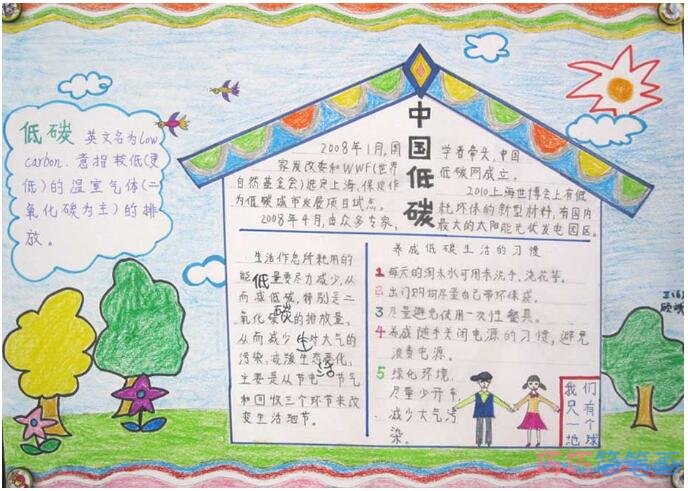 低碳 英文名为low
carbon.意指较低(更
低)的温室气体(二
氧化碳为主)的排
放。
中国低碳
2008年1月,国
家发改委和WWF(世界
自然基金会)选定上海、保定作
为低碳城市发展项目试点。
2008年4月,由众多专家、
学者带头,中国
低碳网成立。
2010上海世博会上有低
耗环体的新型材料,有国内
最大的太阳能光伏发电园区。
低碳生活
生活作息所耗用的
能量要尽力减少,从
而减低碳,特别是二
氧化碳的排放量,
从而减少对大气的
污染,减缓生态恶化,
主要是从节电 节气
和回收三个环节来改
变生活细节。
养成低碳生活的习惯
1 每天的淘米水可用来洗手、浇花等。
2 出门购物尽量自己带环保袋。
3 尽量避免使用一次性餐具。
4 养成随手关闭电源的习惯,避免
浪费电源。
5 绿化环境,
尽量少开车,
减少大气污
染。
我们
只有
一个
地球